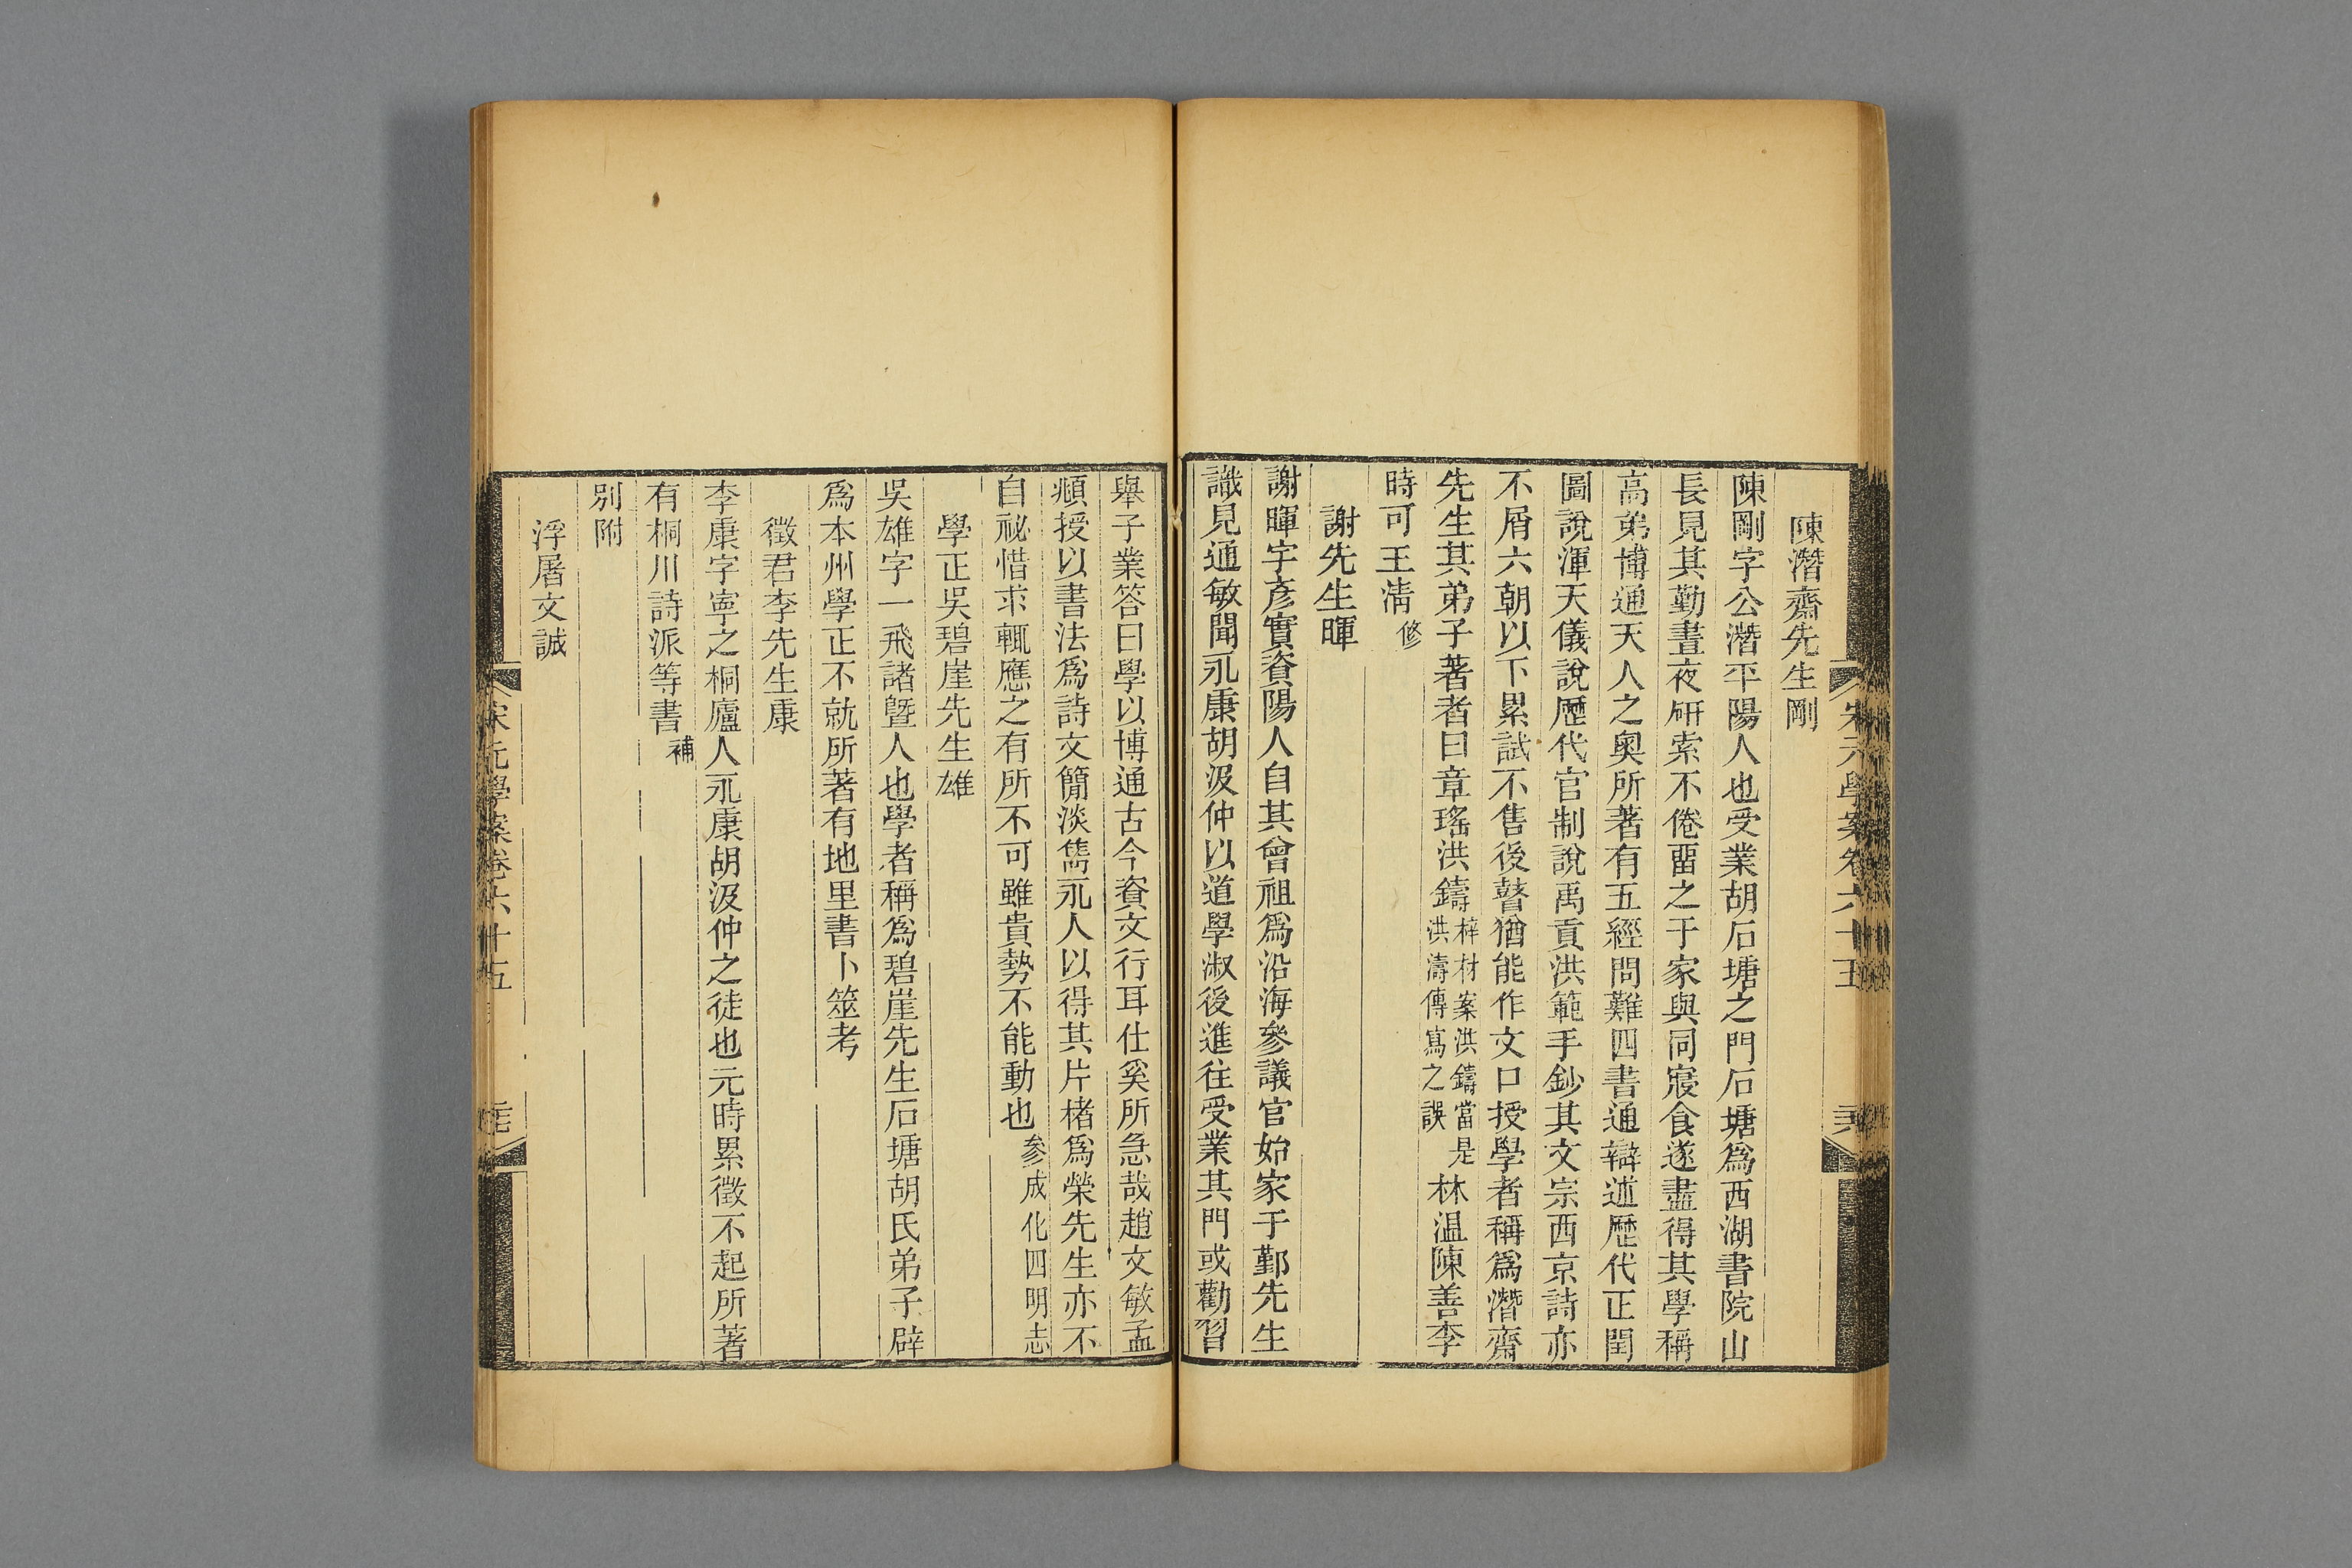 陳潛齋先生剛
陳剛字公潛平陽人也受業胡石塘之門石塘爲西湖書院山
長見其勤晝夜硏索不倦畱之于家與同寢食遂盡得其學稱
高弟博通天人之奧所著有五經問難四書通辯述歷代正閏
圖說渾天儀說歷代官制說禹貢洪範手鈔其文宗西京詩亦
不屑六朝以下累試不售後瞽猶能作文口授學者稱爲潛齋
先生其弟子著者曰章瑤洪鑄梓材案洪鑄當是洪濤傳寫之誤林溫陳善李
時可王淸修
謝先生暉
謝暉字彥實資陽人自其曾祖爲沿海參議官始家于鄞先生
識見通敏聞永康胡汲仲以道學淑後進往受業其門或勸習
宋元學案卷六十五
舉子業答曰學以博通古今資文行耳仕奚所急哉趙文敏孟
頫授以書法爲詩文簡淡雋永人以得其片楮爲榮先生亦不
自祕惜求輒應之有所不可雖貴勢不能動也參成化四明志
學正吳碧崖先生雄
吳雄字一飛諸曁人也學者稱爲碧崖先生石塘胡氏弟子辟
爲本州學正不就所著有地里書卜筮考
徵君李先生康
李康字寧之桐廬人永康胡汲仲之徒也元時累徵不起所著
有桐川詩派等書補
別附
浮屠文誠
宋元學案卷六十五